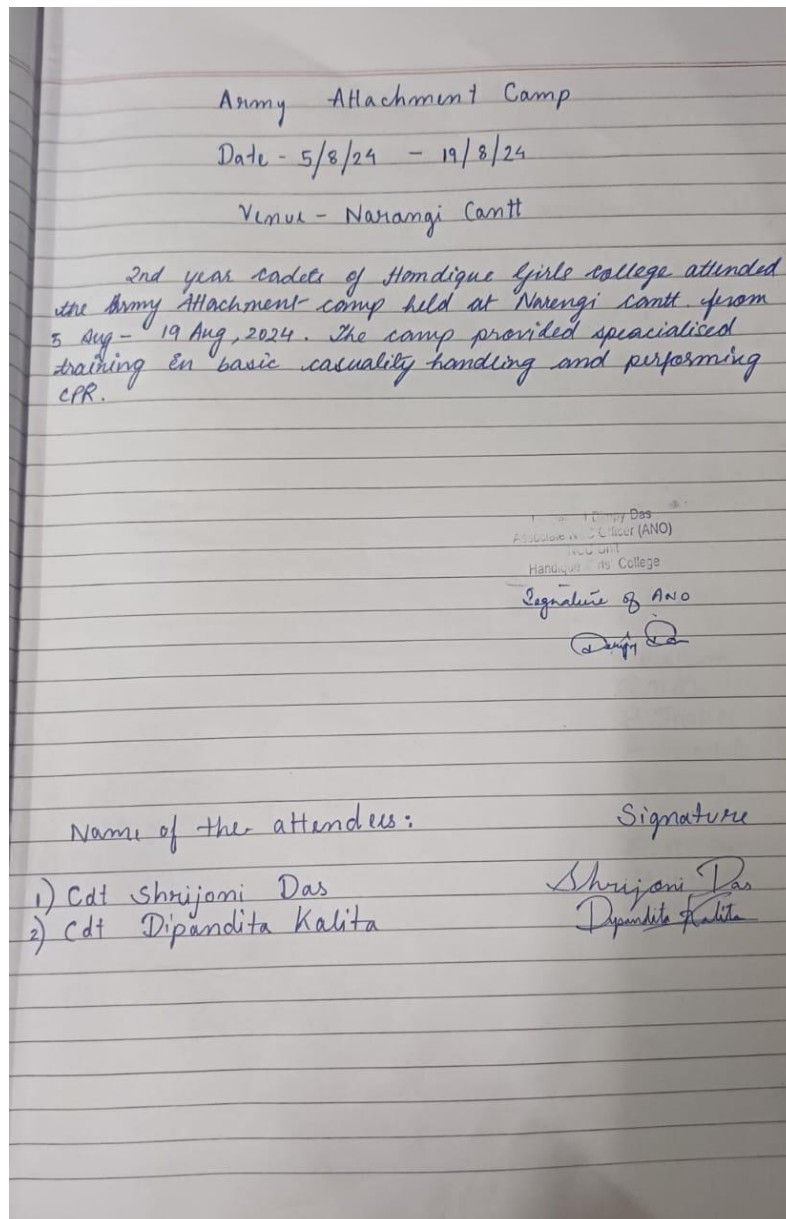 Army Attachment Camp
Date - 5/8/24 - 19/8/24
Venue - Narangi Cantt
2nd year cadets of Handique Girls college attended
the Army Attachment camp held at Narengi cantt. from
5 Aug - 19 Aug, 2024. The camp provided speacialised
training in basic casuality handling and performing
CPR.
Das
Officer (ANO)
College
Signature of ANO
Name of the attendees:
Signature
1) Cdt Shrijoni Das
Shrijoni Das
2) Cdt Dipandita Kalita
Dipandita Kalita